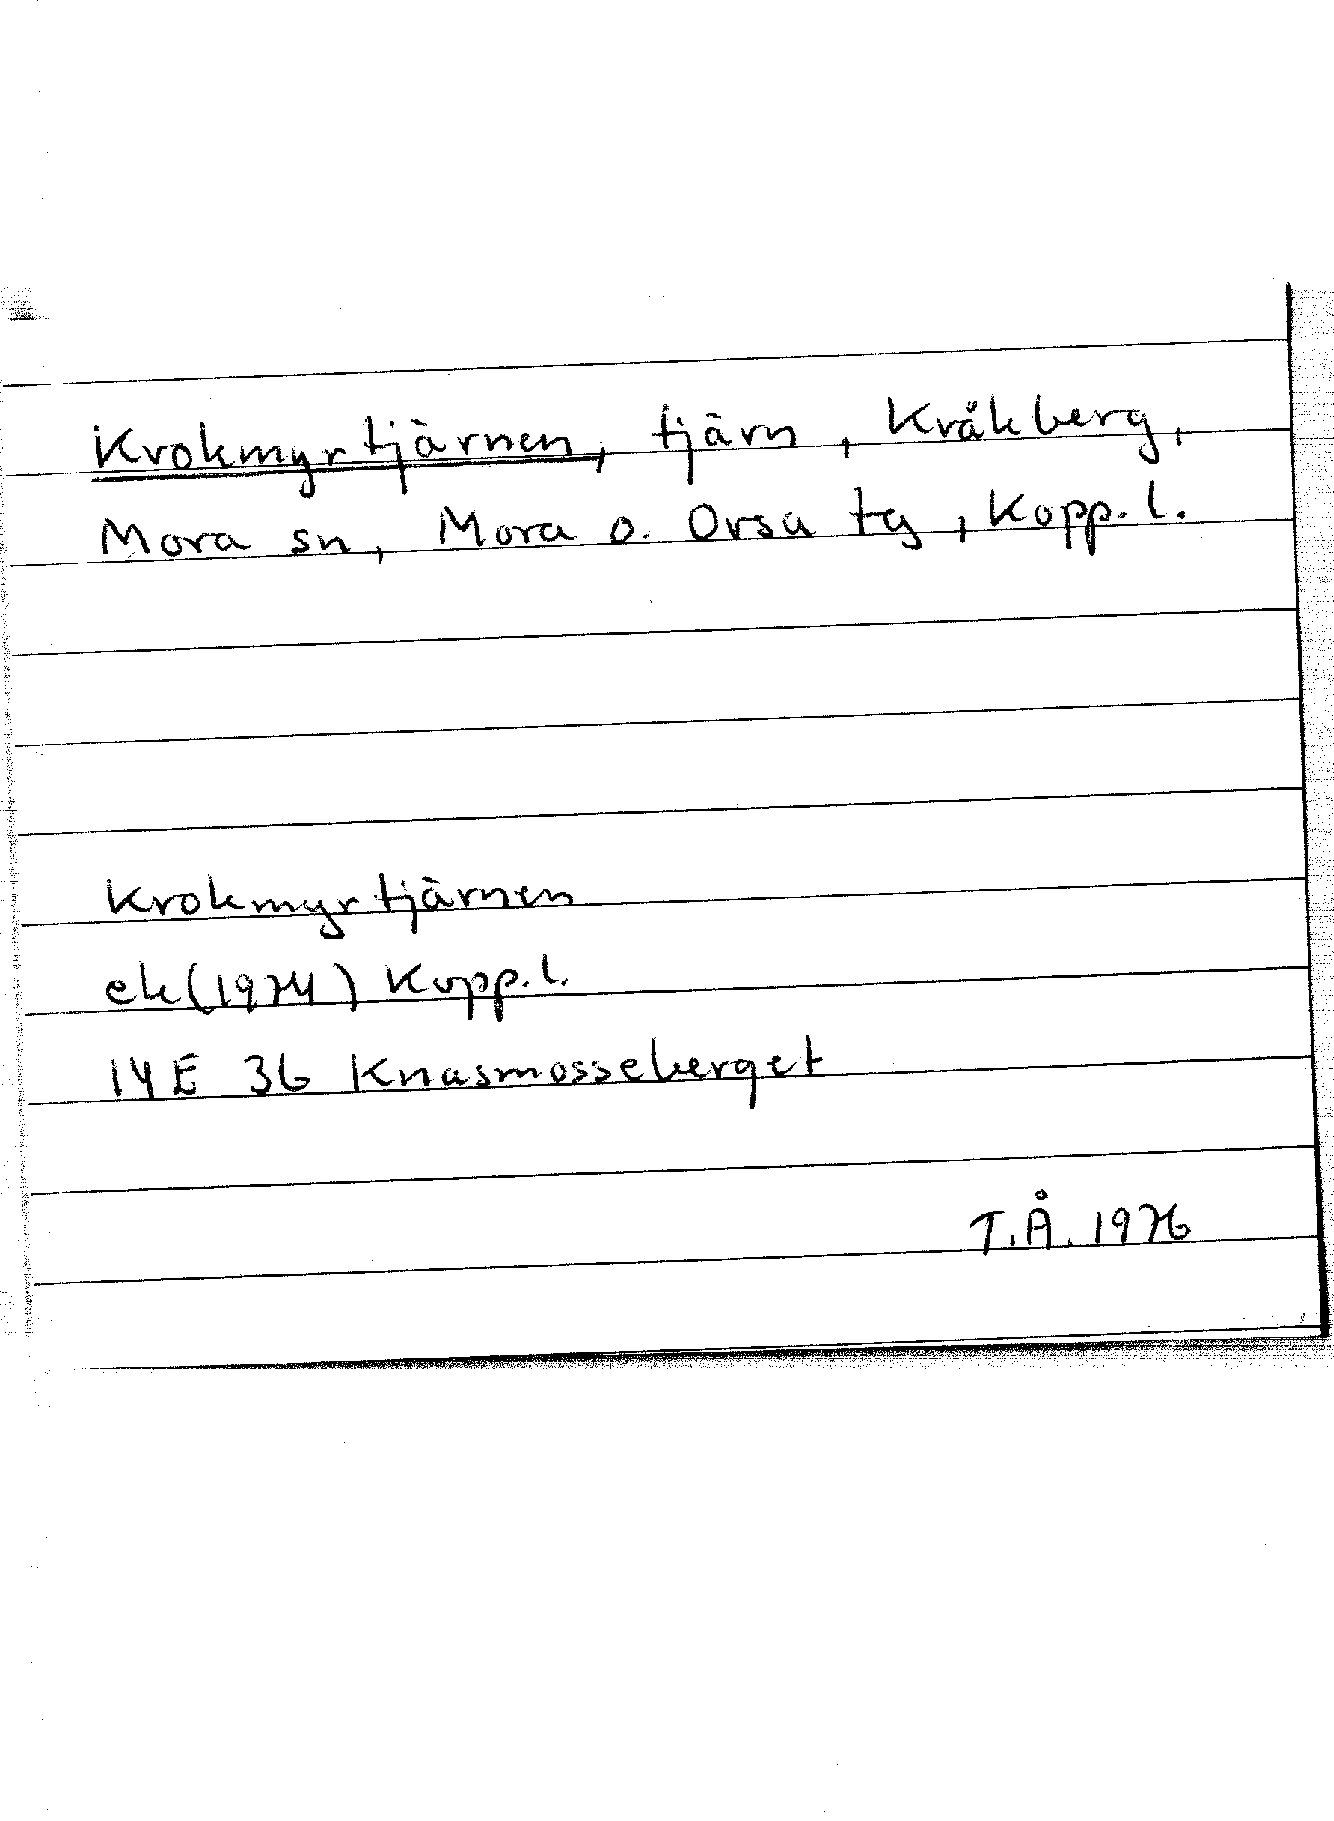 Krokmyrtjärnen, tjärn, Kråkberg,
Mora sn, Mora o. Orsa tg, Kopp. l.
Krokmyrtjärnen
ek (1974) Kopp. l.
14E 3b Knasmosseberget
T.Å. 1976